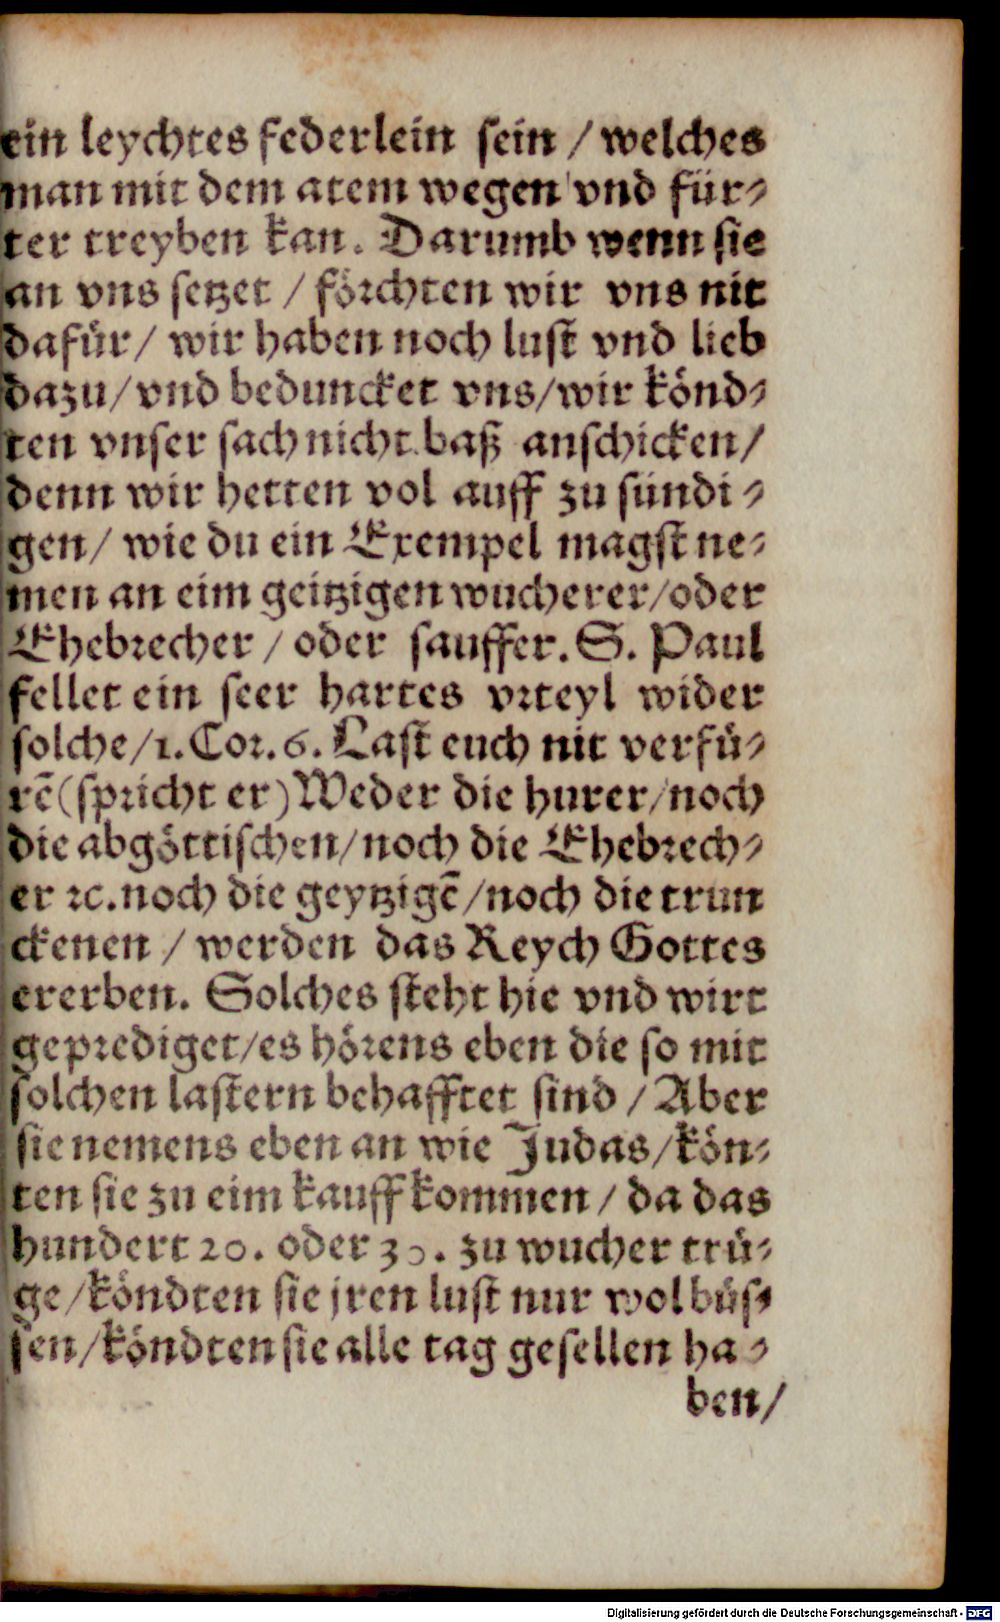 ein leychtes federlein sein / welches
man mit dem atem wegen vnd für⸗
ter treyben kan. Darumb wenn sie
an vns setzet / förchten wir vns nit
dafür / wir haben noch lust vnd lieb
dazu / vnd beduncket vns / wir könd⸗
ten vnser sach nicht baß anschicken /
denn wir hetten vol auff zu sündi⸗
gen / wie du ein Exempel magst ne⸗
men an eim geitzigen wucherer / oder
Ehebrecher / oder sauffer. S. Paul
fellet ein seer hartes vrteyl wider
solche / 1. Cor. 6. Last euch nit verfü⸗
rē (spricht er) Weder die hurer / noch
die abgöttischen / noch die Ehebrech⸗
er ꝛc. noch die geytzigē / noch die trun
ckenen / werden das Reych Gottes
ererben. Solches steht hie vnd wirt
geprediget / es hörens eben die so mit
solchen lastern behafftet sind / Aber
sie nemens eben an wie Judas / kön⸗
ten sie zu eim kauff kommen / da das
hundert 20. oder 30. zu wucher trü⸗
ge / köndten sie jren lust nur wol büs⸗
sen / köndten sie alle tag gesellen ha⸗
ben /
Digitalisierung gefördert durch die Deutsche Forschungsgemeinschaft - DFG